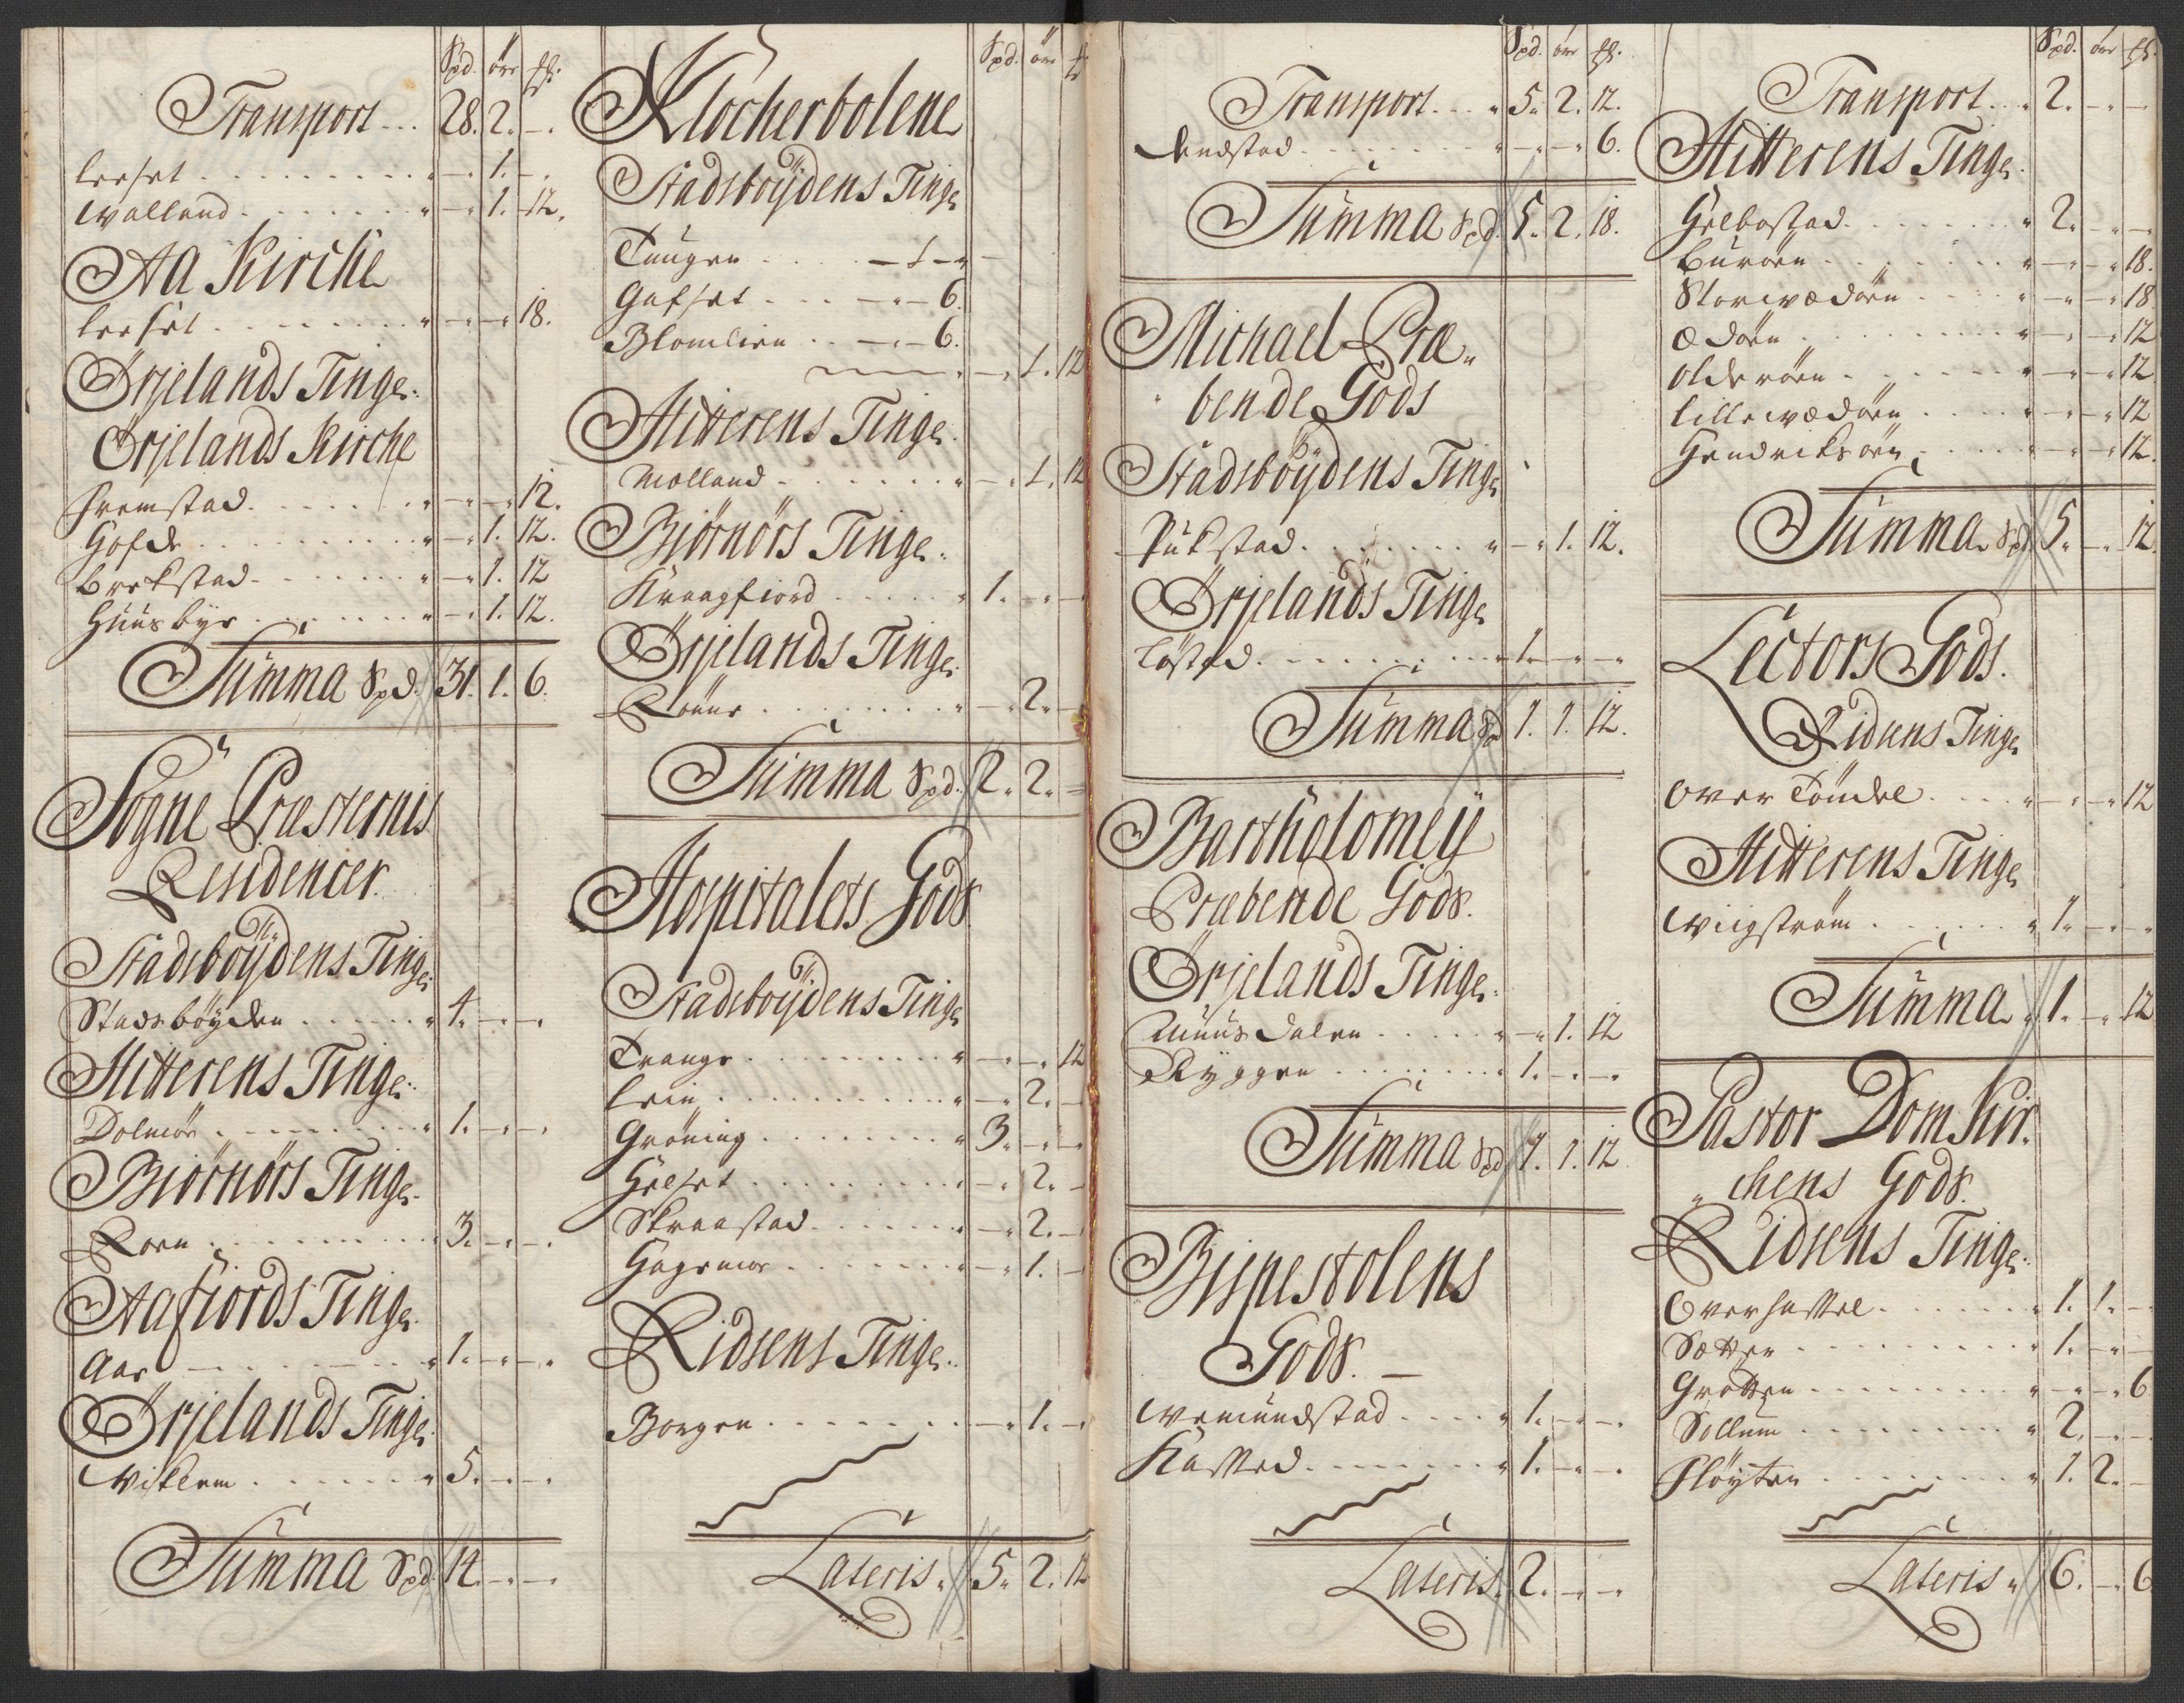 Spd. ör ß.
Transport 28. 2. –.
leeset – 1. –.
Walland – 1. 12.
Aa Kirche
leeset – – 18.
Ørjelands Tinge.
Ørjelands Kirche
Fremstad – – 12.
Hofde – 1. 12.
Brekstad – 1. 12
Huusbye – 1. 12.
Summa Spd. 31. 1. 6.
Sogne Præsternis
Residencer
Stadsbøydens Tinge
Stadsbøyden 4. – –
Hitterens Tinge
Dolmør 1. – –
Biørnørs Tinge
Roen 3. – –
Aafiords Tinge
Aar 1. – –
Ørjelands Tinge
Wiklem 5. – –
Summa Spd 14. – –
Spd. ör ß
Klocherbolene
Stadsbøydens Tinge
Tungen – 1 –
Gafset – – 6.
Blomlien – – 6.
– 1. 12
Hitterens Tinge
Molland – 1. 12
Biørnørs Tinge
Kraagfiord 1. – –
Ørjelands Tinge
Rönne – 2. –
Summa Spd. 2. 2. –
Hospitalets Gods
Stadsbøydens Tinge
Trange – – 12
Lein – 2. –
Grøning 3. – –
Helset – 2. –
Skraastad – 2. –
Hagemoe – 1. –
Ridsens Tinge
Borgen – 1. –
Lateris 5. 2. 12
Spd. ör ß.
Transport 5. 2. 12.
Rendstad – – 6.
Summa Spd. 5. 2. 18.
Michael Præ-
bende Gods
Stadsbøydens Tinge
Pukstad – 1. 12.
Ørjelands Tinge
1. – –
Summa Spd 1. 1. 12.
Bartholomey
Præbende Gods.
Ørjelands Tinge
Munsdalen – 1. 12
Ryggen 1. – –
Summa Spd 1. 1. 12
Bispestolens
Gods. –
Wemundstad 1. – –
Hatted 1. – –
Lateris 2. – –
Spd. ör ß.
Transport 2. – –
Hitterens Tinge
Helbostad 2. – –
Burøen – – 18.
Storwædøen – – 18
Ædøen – – 12
Olderøen – – 12
Lillewædøen – – 12
Hendriksøen – – 12.
Summa Spd 5. – 12
Lectors Gods.
Ridsens Tinge
Over Tøndel – – 12
Hitterens Tinge
Wiigstrøm 1. – –
Summa 1. – 12
Pastor Dom Kir-
chens Gods.
Ridsens Tinge
Overhassel 1. 1. –
Sætter 1. – –
Grøtten – – 6
Sollum 2. – –
Fløyten 1. 2. –
Lateris 6. – 6